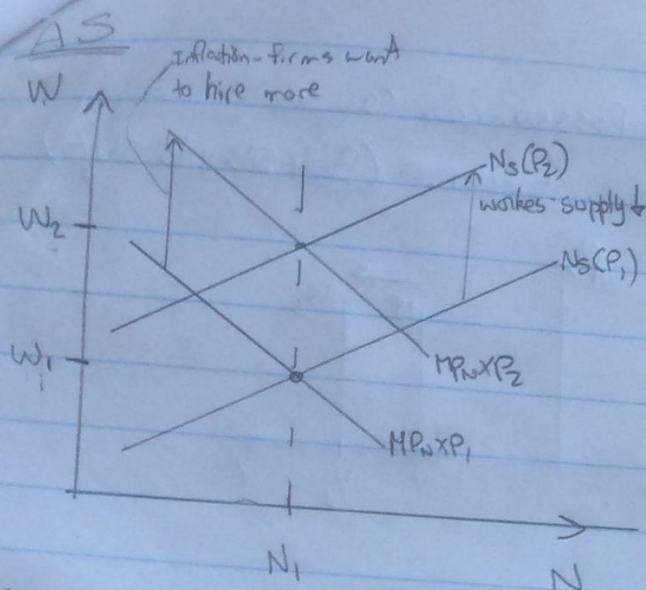 AS
Inflation - firms want
to hire more
W
Ns(P₂)
workes supply ↓
W₂
Ns(P₁)
W₁
MPₙxP₂
MPₙxP₁
N₁
N